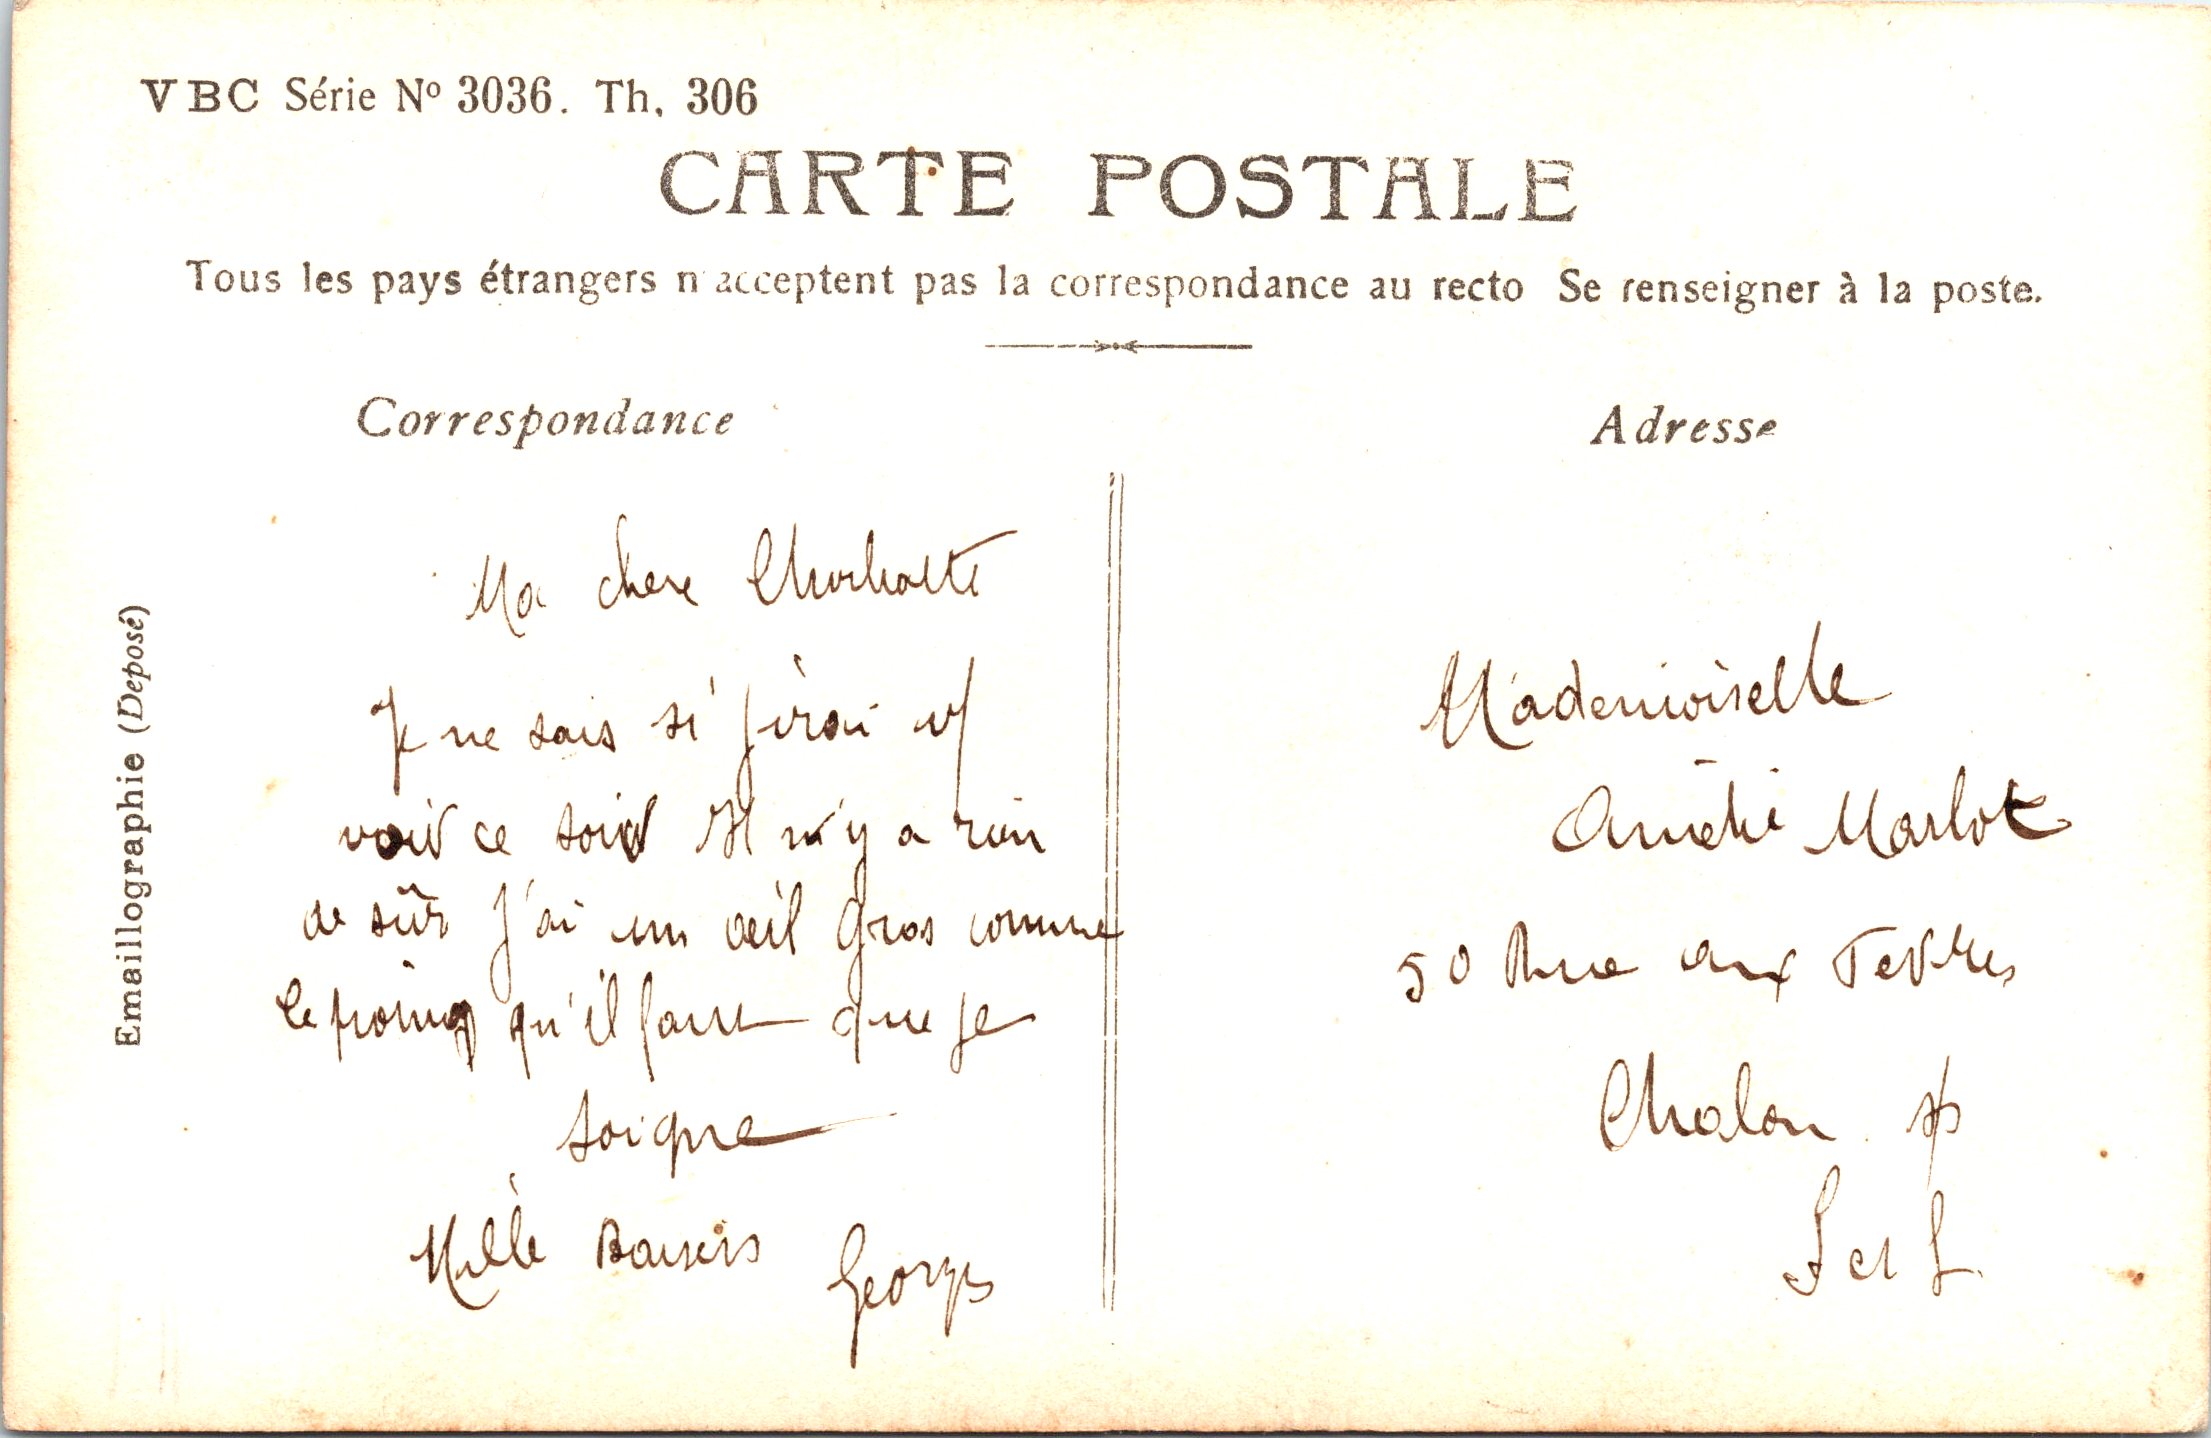 VBC Série Nº 3036. Th. 306
CARTE POSTALE
Tous les pays étrangers n'acceptent pas la correspondance au recto Se renseigner à la poste.
Correspondance
Adresse
Emaillographie (Deposé)
Ma chere
Je ne sais si j'irai
voir ce soir Il n'y a rien
de sûr J'ai un œil gros comme
le poing qu'il faut que je
soigne
Mille Baisers Georges
Mademoiselle
Marlot
50 Rue aux Fevres
Chalon s/s
S et L